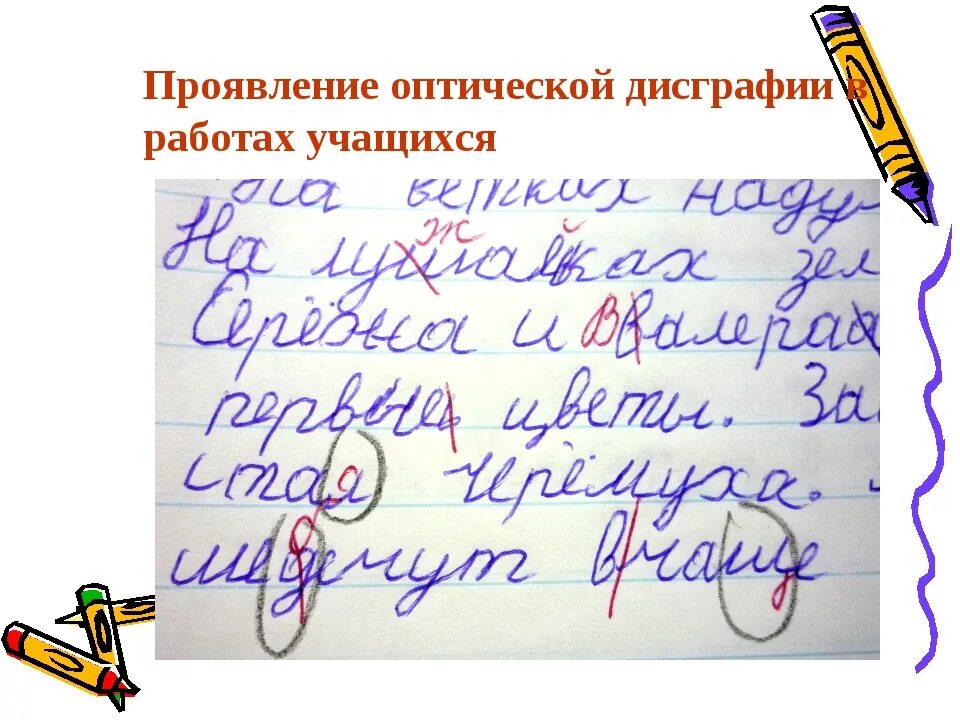 Проявление оптической дисграфии в
работах учащихся
На ветках наду
ж й
На лушайках зел
Серёжа и Валера
первые цветы. За
стая черёмуха.
щ
в чаще